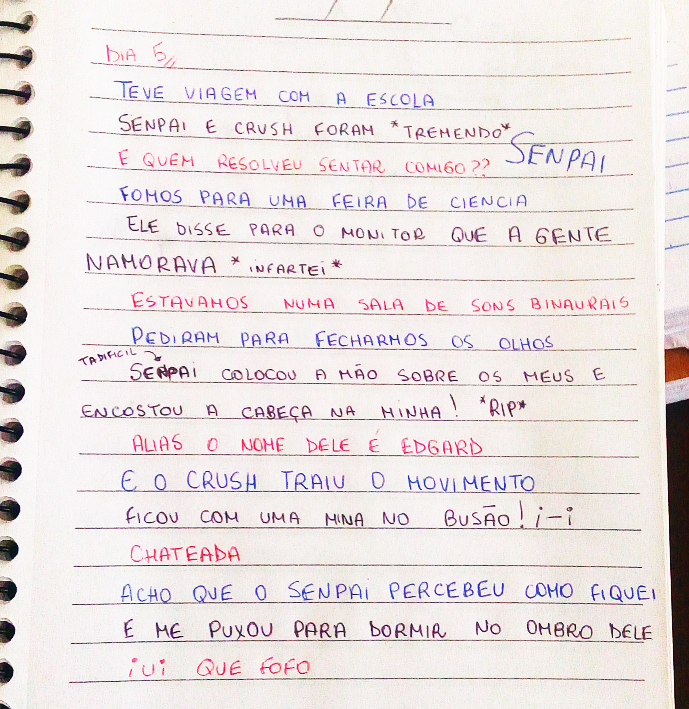 DIA 5//
TEVE VIAGEM COM A ESCOLA
SENPAI E CRUSH FORAM *TREMENDO*
E QUEM RESOLVEU SENTAR COMIGO?? SENPAI
FOMOS PARA UMA FEIRA DE CIENCIA
ELE DISSE PARA O MONITOR QUE A GENTE
NAMORAVA *INFARTEI*
ESTAVAMOS NUMA SALA DE SONS BINAURAIS
PEDIRAM PARA FECHARMOS OS OLHOS
TADIFICIL
SENPAI COLOCOU A MÃO SOBRE OS MEUS E
ENCOSTOU A CABEÇA NA MINHA! *RIP*
ALIAS O NOME DELE É EDGARD
E O CRUSH TRAIU O MOVIMENTO
FICOU COM UMA MINA NO BUSÃO! i-i
CHATEADA
ACHO QUE O SENPAI PERCEBEU COMO FIQUEI
E ME PUXOU PARA DORMIR NO OMBRO DELE
iui QUE FOFO